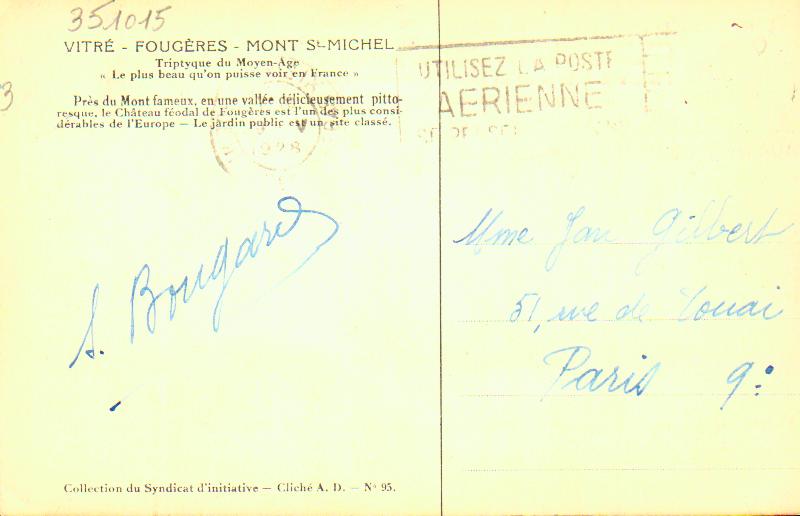 351015
VITRÉ - FOUGÈRES - MONT St-MICHEL
Triptyque du Moyen-Age
« Le plus beau qu'on puisse voir en France »
Près du Mont fameux, en une vallée délicieusement pitto-
resque, le Château féodal de Fougères est l'un des plus consi-
dérables de l'Europe — Le jardin public est un site classé.
UTILISEZ LA POSTE
AERIENNE
1928
3
S. Bougard
Mme Jan Gilbert
51, rue de Douai
Paris 9:
Collection du Syndicat d'initiative — Cliché A. D. — No 95.